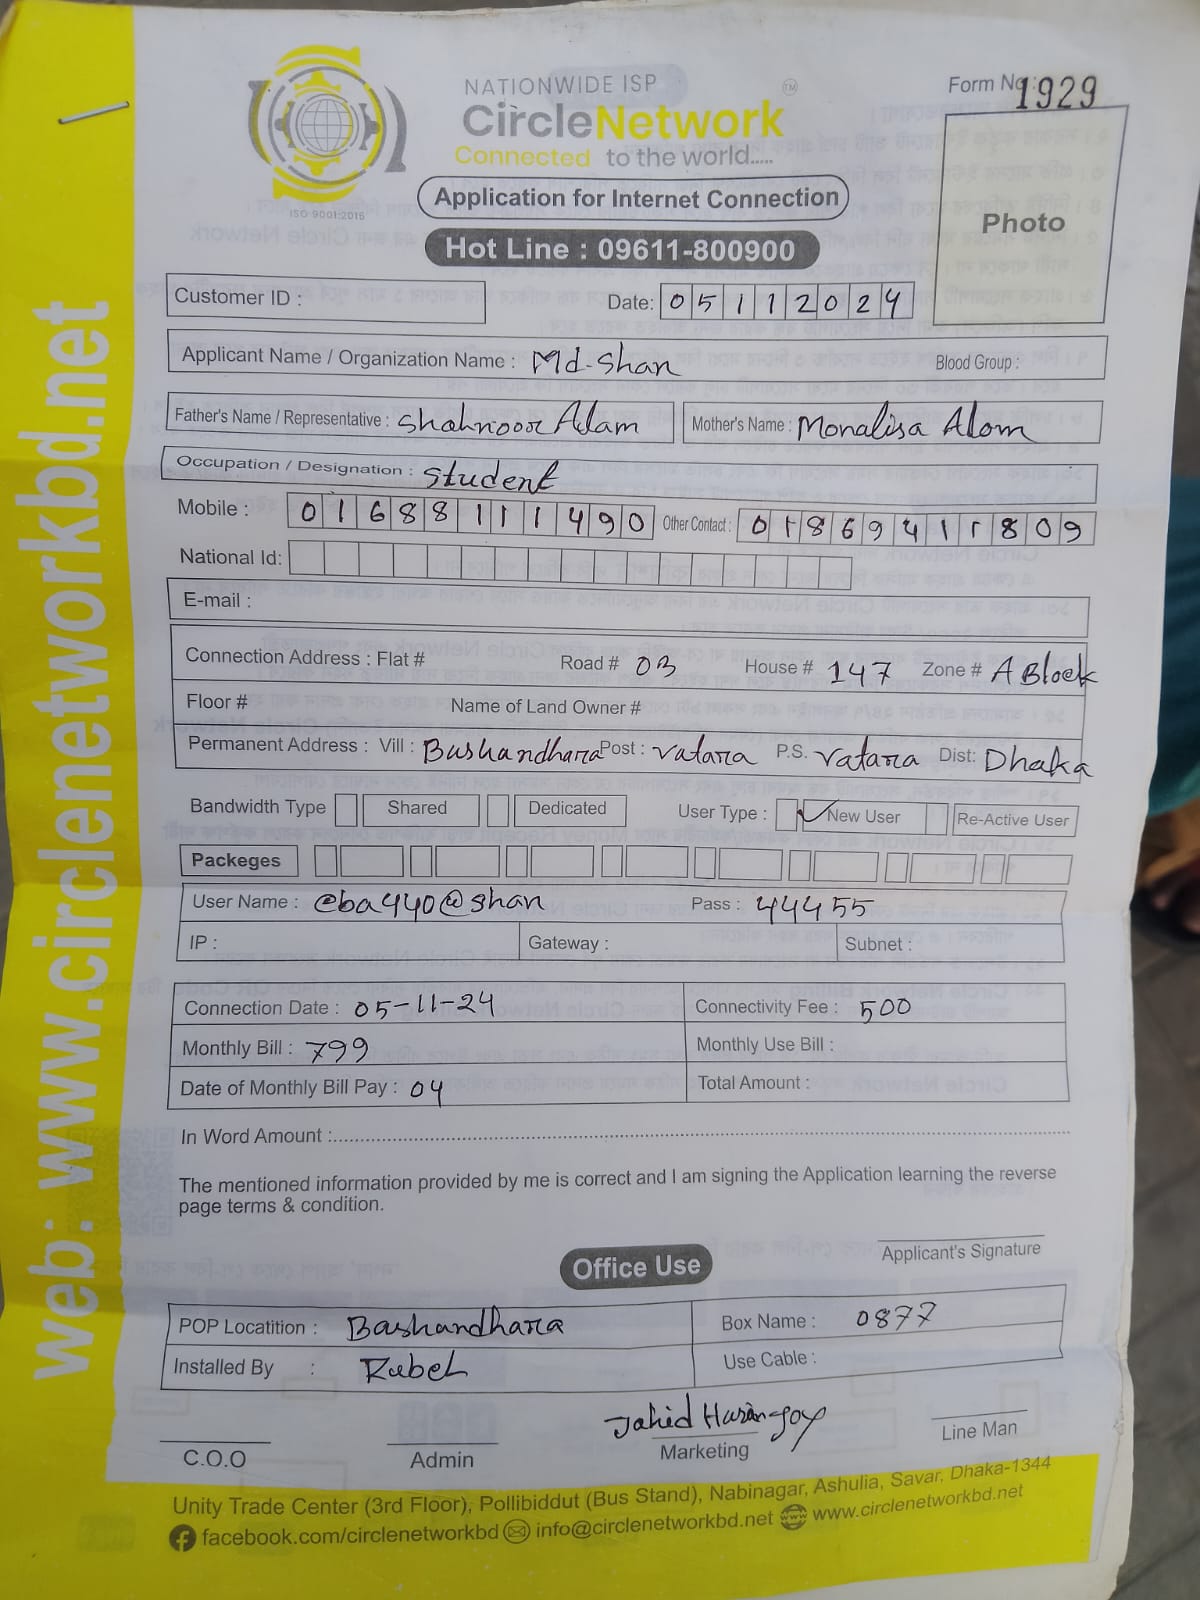 NATIONWIDE ISP
CircleNetwork TM
Connected to the world.....
ISO 9001:2015
Form No : 1929
Photo
Application for Internet Connection
Hot Line : 09611-800900
Customer ID :
Date: 05112024
Applicant Name / Organization Name : Md-Shan
Blood Group :
Father's Name / Representative : Shahnoor Alam
Mother's Name : Monalisa Alom
Occupation / Designation : Student
Mobile : 01688111490 Other Contact : 01869411809
National Id:
E-mail :
Connection Address : Flat # Road # 03 House # 147 Zone # A Block
Floor # Name of Land Owner #
Permanent Address : Vill : Bashandhara Post : vatara P.S. vatara Dist: Dhaka
Bandwidth Type Shared Dedicated User Type : ✓ New User Re-Active User
Packeges
User Name : cba440@shan Pass : 44455
IP : Gateway : Subnet :
Connection Date : 05-11-24 Connectivity Fee : 500
Monthly Bill : 799 Monthly Use Bill :
Date of Monthly Bill Pay : 04 Total Amount :
In Word Amount :
The mentioned information provided by me is correct and I am signing the Application learning the reverse
page terms & condition.
Applicant's Signature
Office Use
POP Locatition : Bashandhara Box Name : 0877
Installed By : Rubel Use Cable :
Jahid Hasan
C.O.O Admin Marketing Line Man
Unity Trade Center (3rd Floor), Pollibiddut (Bus Stand), Nabinagar, Ashulia, Savar, Dhaka-1344
facebook.com/circlenetworkbd info@circlenetworkbd.net www.circlenetworkbd.net
web: www.circlenetworkbd.net